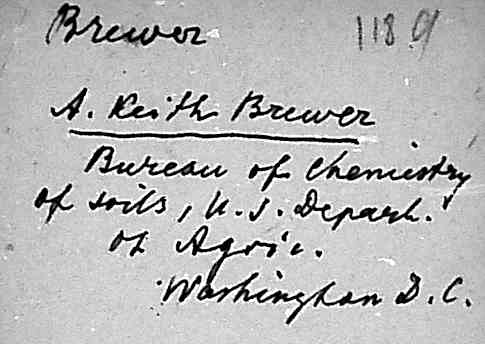 Brewer 118.9
A. Keith Brewer
Bureau of Chemistry
of soils, U.S. Depart.
of Agric.
Washington D.C.